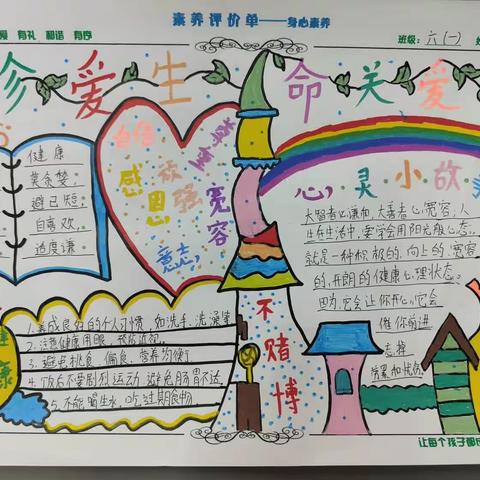 素养评价单——身心素养
有礼 和谐 有序
班级：六（一）
珍爱生命关爱
健康
莫贪婪，
避己短，
自喜欢，
适度谦。
自信
感恩
顽强
尊重
宽容
意志
心灵小故
人生在生活中，要学会用阳光般心态。
就是一种积极的，向上的，宽容
的，开朗的健康心理状态。
因为，它会让你开心，它会
催你前进
忘掉
不赌博
1.养成良好的个人习惯，如洗手，洗澡等
2.注意健康用眼，预防近视。
3.避免挑食，偏食，营养均衡
4.饭后不要剧烈运动，避免肠胃不适，
5.不能喝生水，吃过期食物，
健康
让每个孩子都